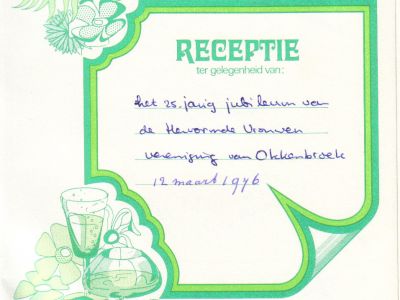 RECEPTIE
ter gelegenheid van:
het 25.jarig jubileum van
de Hervormde Vrouwen
vereniging van Okkenbroek
12 maart 1976